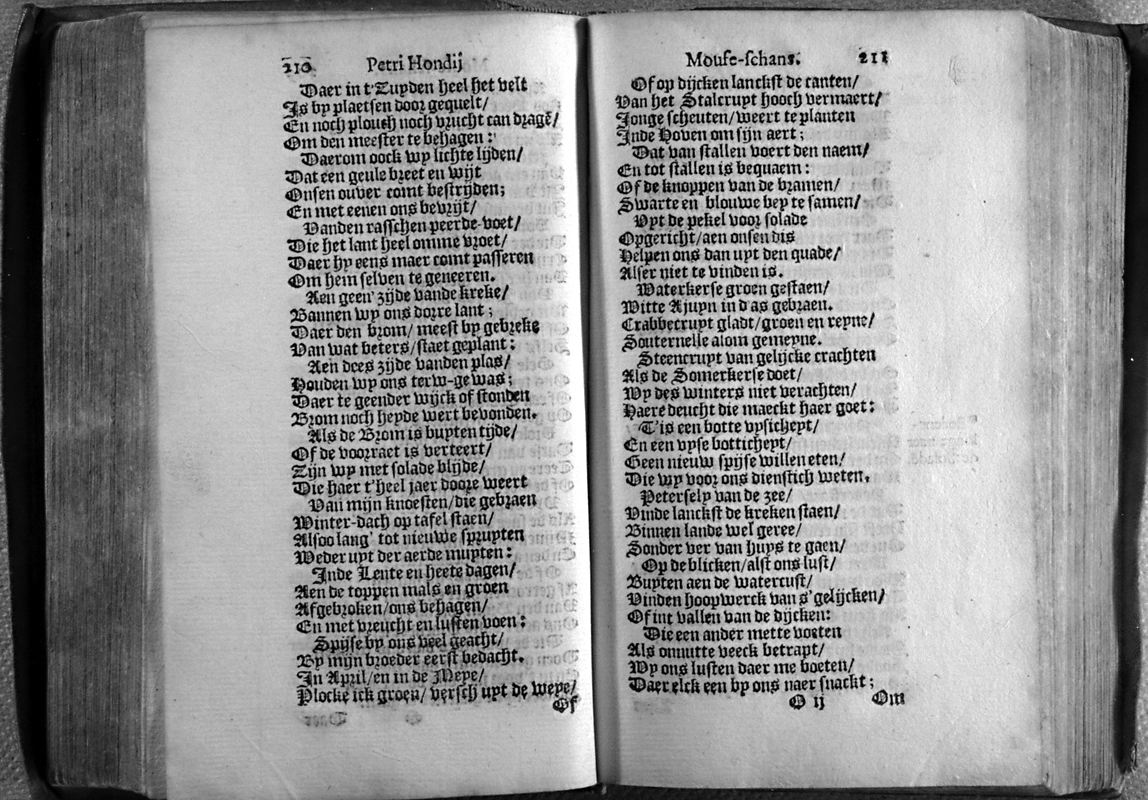 210 Petri Hondij
Daer in t'Zuyden heel het velt
Is by plaetsen door gequelt/
En noch plouch noch vrucht can dragē/
Om den meester te behagen:
Daerom oock wy lichte lijden/
Dat een geule breet en wijt
Onsen ouver comt bestrijden;
En met eenen ons bevrijt/
Vanden rasschen peerde-voet/
Die het lant heel omme vroet/
Daer hy eens maer comt passeren
Om hem selven te geneeren.
Aen geen' zijde vande kreke/
Bannen wy ons dorre lant;
Daer den brom/ meest by gebreke
Van wat beters/ staet geplant:
Aen dees zijde vanden plas/
Houden wy ons terw-gewas;
Daer te geender wijck of stonden
Brom noch heyde wert bevonden.
Als de Brom is buyten tijde/
Of de voorraet is verteert/
Zijn wy met solade blijde/
Die haer t'heel jaer doore weert
Van mijn knoesten/die gebraen
Winter-dach op tafel staen/
Alsoo lang' tot nieuwe spruyten
Weder uyt der aerde muyten:
Inde Lente en heete dagen/
Aen de toppen mals en groen
Afgebroken/ons behagen/
En met vreucht en lusten voen:
Spijse by ons veel geacht/
By mijn broeder eerst bedacht.
In April/en in de Meye/
Plocke ick groen/ versch uyt de weye/
Of
Mouse-schans. 211
Of op dijcken lanckst de canten/
Van het Stalcruyt hooch vermaert/
Jonge scheuten/weert te planten
Inde Hoven om sijn aert;
Dat van stallen voert den naem/
En tot stallen is bequaem:
Of de knoppen van de bramen/
Swarte en blouwe bey te samen/
Uyt de pekel voor solade
Opgericht/aen onsen dis
Helpen ons dan uyt den quade/
Alser niet te vinden is.
Waterkerse groen gestaen/
Witte Ajuyn in d'as gebraen.
Crabbecruyt gladt/groen en reyne/
Souternelle alom gemeyne.
Steencruyt van gelijcke crachten
Als de Somerkerse doet/
Wy des winters niet verachten/
Haere deucht die maeckt haer goet:
T'is een botte vysicheyt/
En een vyse botticheyt/
Geen nieuw spijse willen eten/
Die wy voor ons dienstich weten.
Petersely van de zee/
Vinde lanckst de kreken staen/
Binnen lande wel geree/
Sonder ver van huys te gaen/
Op de blicken/alst ons lust/
Buyten aen de watercust/
Vinden hoopwerck van s'gelijcken/
Of int vallen van de dijcken:
Die een ander mette voeten
Als onnutte veeck betrapt/
Wy ons lusten daer me boeten/
Daer elck een by ons naer snackt;
O ij Om